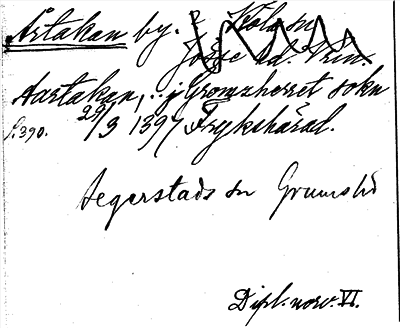 Årtakan by. ? Köla sn
Jösse hd. Vrm.
Aartakan, : j Gromsherret sokn
s. 390. 29/3 1397 Frykshärad.
Segerstads sn Grums hd
Dipl. norv. VI.